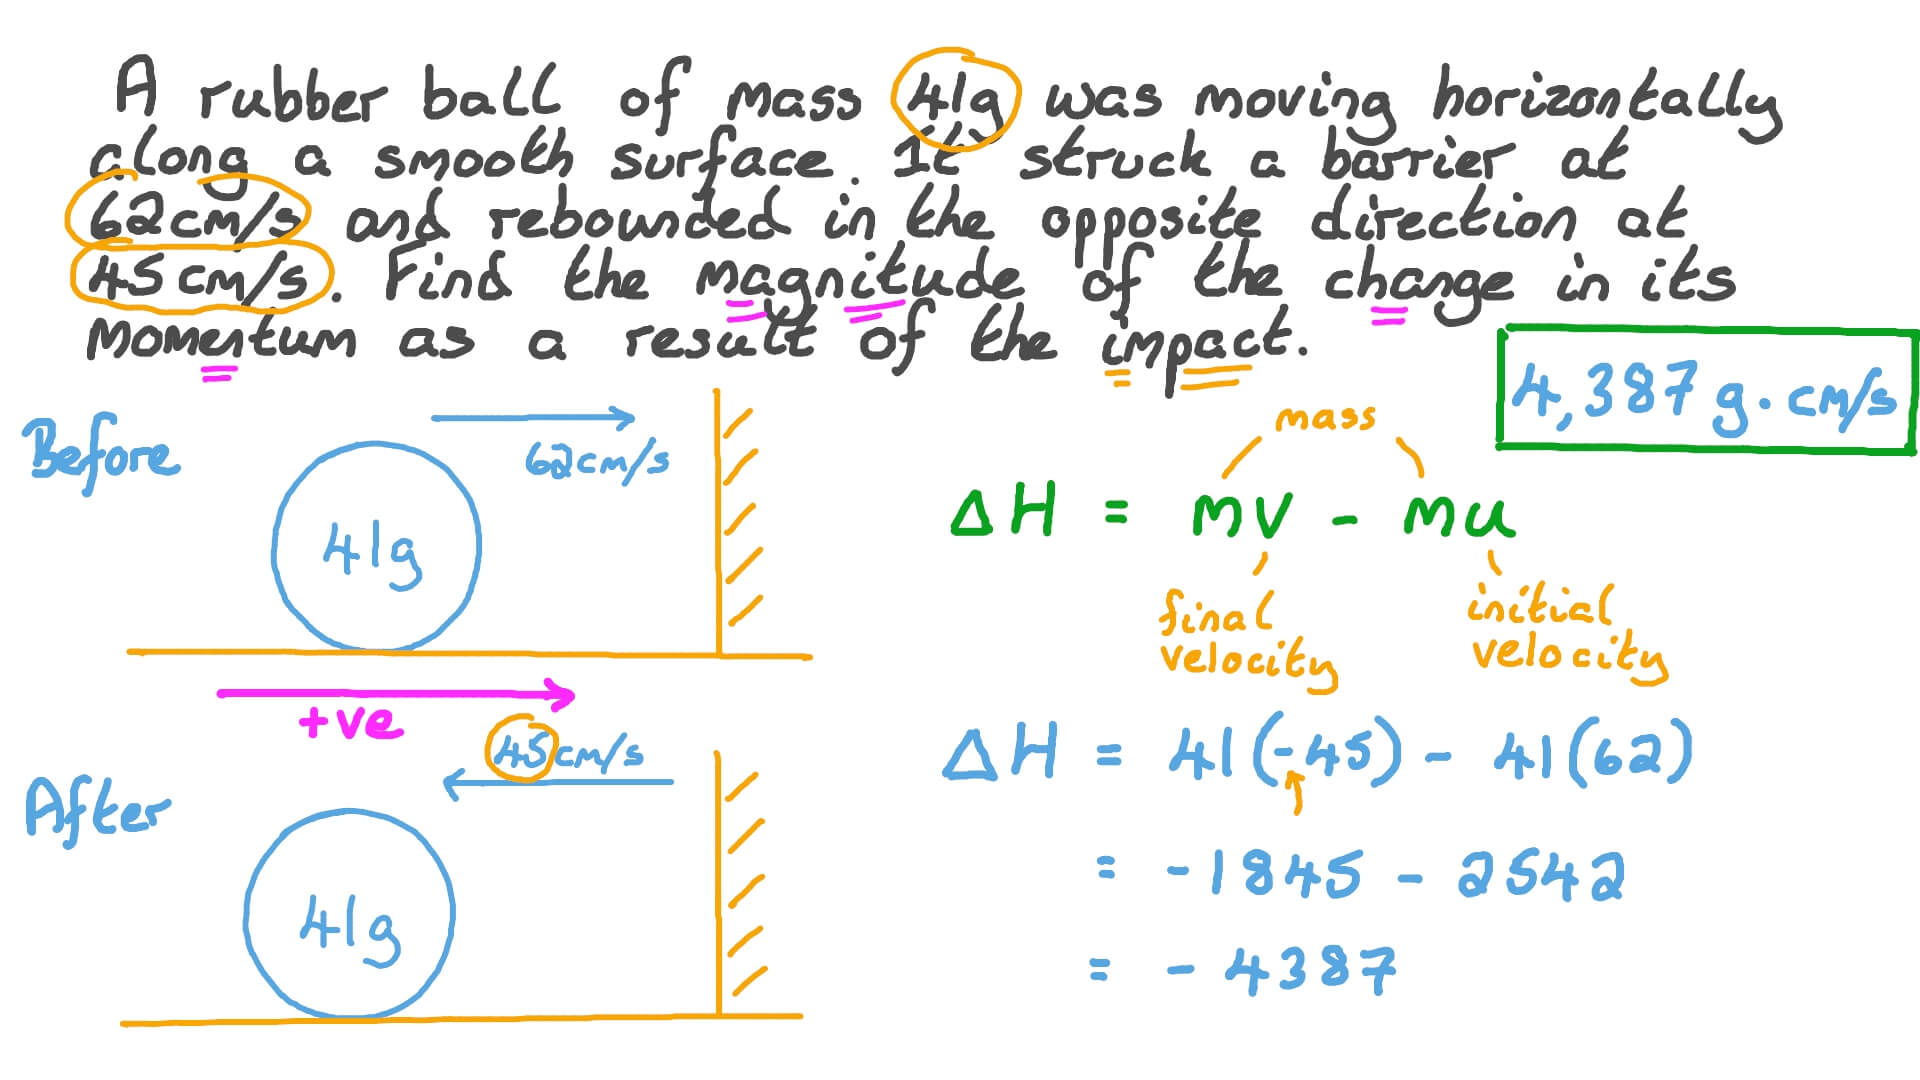 A rubber ball of mass 41g was moving horizontally
along a smooth surface. It struck a barrier at
62cm/s and rebounded in the opposite direction at
45cm/s. Find the magnitude of the change in its
momentum as a result of the impact.
4,387 g·cm/s
Before
62cm/s
41g
+ve
After
45cm/s
41g
mass
ΔH = mv - mu
final velocity
initial velocity
ΔH = 41(-45) - 41(62)
= -1845 - 2542
= -4387